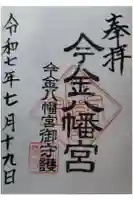 奉拝
今金八幡宮
今金八幡宮御守護
令和七年七月十九日